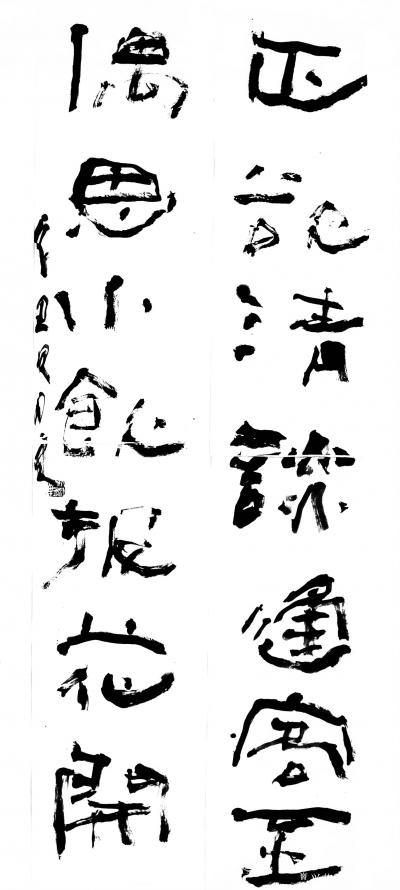 正記清談逢客至
偶思小飲報花開